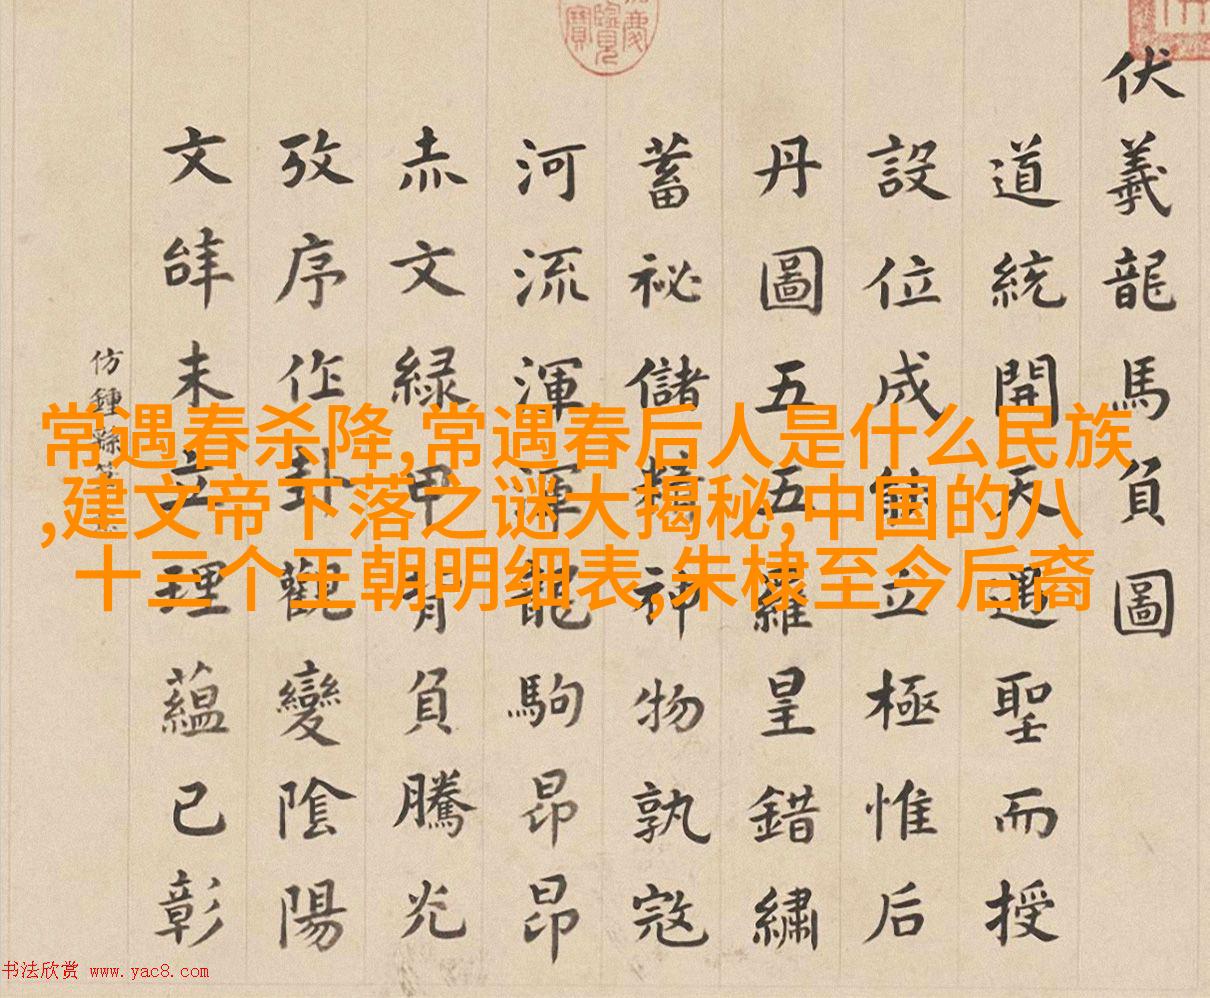 伏羲龍馬負圖
道統開天遇聖而授
設位成立極惟后
丹圖五五羅皇錯繡
蓄祕儲精神物孰寇
河流渾渾龍駒昂昂
赤文緑甲背負騰光
攷序作卦觀變陰陽
文未立理蘊已彰
仿鍾繇
常遇春杀降,常遇春后人是什么民族
,建文帝下落之谜大揭秘,中国的八
十三个王朝明细表,朱棣至今后裔
书法欣赏 www.yac8.com